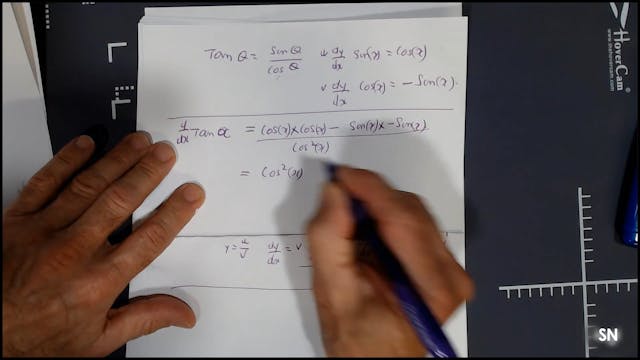 Tan θ = sin θ / cos θ ↓ dy/dx sin(x) = cos(x)
↓ dy/dx cos(x) = - sin(x).
y/dx Tan x = cos(x) × cos(x) - sin(x) × - sin(x) / cos²(x)
= cos²(x)
y = u/v dy/dx = v
HoverCam
www.thehovercam.com
SN